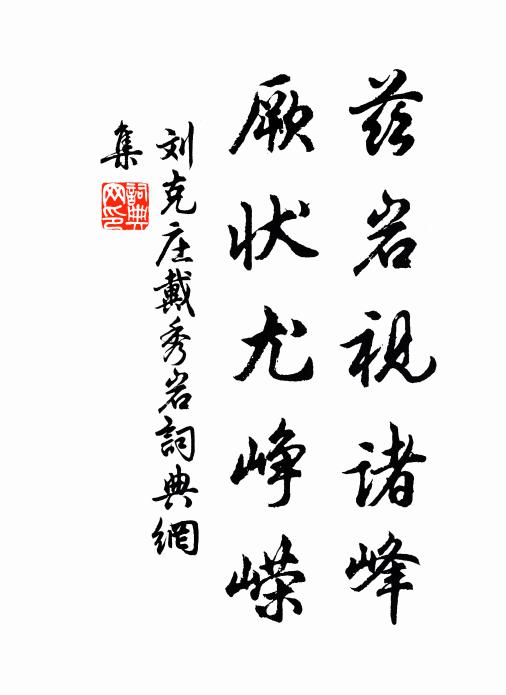 兹岩视诸峰
厥状尤峥嵘
刘克庄戴秀岩词典網
集
詞典网印